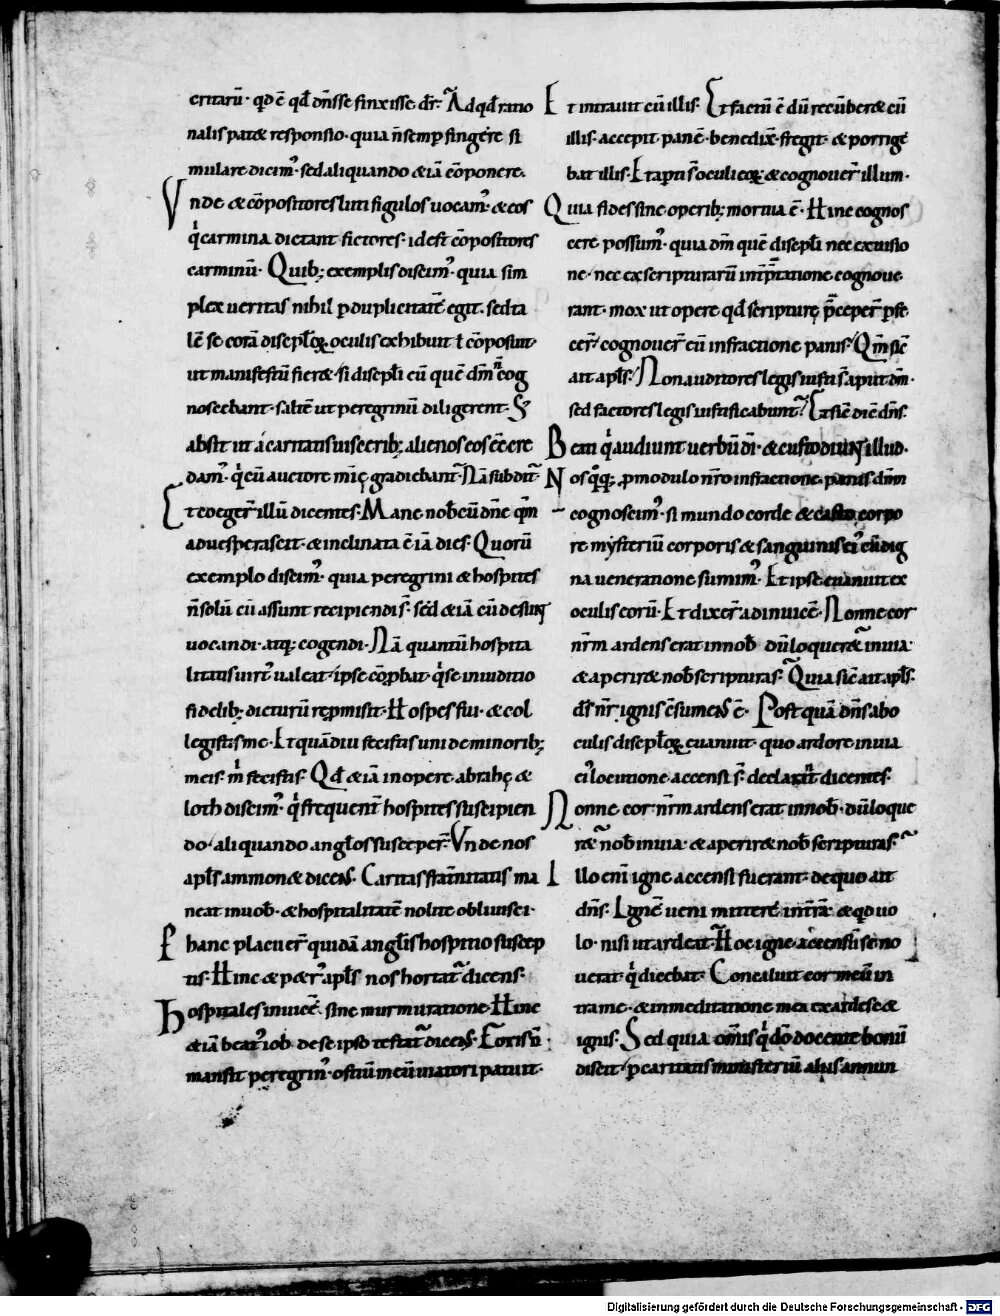 eritarū· qđ ē qđ dn̄s se finxisse dr̄· Ad qđ ratio
nalis patet responsio· quia n̄ semp fingere si
mulare dicim᷒· sed aliquando & iā cōponere·
Vnde & cōpositores luti figulos uocam᷒· & eos
qͥ carmina dictant fictores· id est cōpositores
carminū· Quib; exemplis discim᷒· quia sim
plex ueritas nihil p duplicitatē egit· sed ta
lē se corā discipl̄oꝝ oculis exhibuit ł cōposuit·
ut manifestū fieret· si discipl̄i eū quē dm̄ n̄ cog
noscebant· saltē ut peregrinū diligerent· S;
absit ut a caritatis uiscerib; alienos eos ēē crede
dam᷒· qͥ cū auctore mīę gradiebant᷒· Nā subdit᷒·
Et coeger̄ illū dicentes· Mane nob̄cū dn̄e qm̄
aduesperascit· & inclinata ē iā dies· Quorū
exemplo discim᷒· quia peregrini & hospites
n̄ solū cū assunt recipiendi s̄· sed & iā cū desunt
uocandi· atq; cogendi· Nā quantū hospita
litatis uirt᷒ ualeat· ipse cōprobat· qͥ se in iuditio
fidelib; dicturū repmisit· Hospes fui· & col
legistis me· Et quādiu fecistis uni de minorib;
meis· mͥ fecistis· Qđ & iā in opere abrahę &
loth discim᷒· qͥ frequent̄ hospites suscipien
do· aliquando angl̄os susceper̄· Vnde nos
apl̄s ammonet dicens· Caritas fr̄nitatis ma
neat in uob̄· & hospitalitatē nolite obliuisci·
P hanc placuer̄ quidā angl̄is hospitio suscep
tis· Hinc & petr᷒ apl̄s nos hortat᷒ dicens·
Hospitales inuicē· sine murmuratione· Hinc
& iā beat᷒ iob· de se ipso testat᷒ dicens· Foris n̄
mansit peregrin᷒· ostiū meū uiatori patuit·
Et intrauit cū illis· Et factū ē dū recūberet cū
illis· accepit panē· benedix̄· fregit· & porrige
bat illis· Et apti s̄ oculi eoꝝ· & cognouer̄ illum·
Quia fides sine operib; mortua ē· Hinc cognos
cere possum᷒· quia dm̄ quē discipl̄i nec ex uisio
ne· nec ex scripturarū int̄p̄tatione cognoue
rant· mox ut opere qđ scripturę p̄ceper̄ pfe
cer̄· cognouer̄ eū in fractione panis· Qm̄ sic̄
ait apl̄s· Non auditores legis iusti s̄ aput dm̄·
sed factores legis iustificabunt᷒· Et sic̄ dic̄ dn̄s·
Beati qͥ audiunt uerbū di̅· & custodiunt illud·
Nos qͦq; p modulo nr̄o in fractione panis dn̄m
cognoscim᷒· si mundo corde & casto corpo
re mysteriū corporis & sanguinis ei᷒ cū dig
na ueneratione sumim᷒· Et ipse euanuit ex
oculis eorū· Et dixer̄ ad inuicē· Nonne cor
nr̄m ardens erat in nob̄· dū loqueret᷒ in uia·
& aperiret nob̄ scripturas· Quia sic̄ ait apl̄s·
ds̄ nr̄ ignis c̄sumens ē· Post quā dn̄s ab o
culis discipl̄oꝝ euanuit· quo ardore in uia
ei᷒ locutione accensi s̄· declarant dicentes·
Nonne cor nr̄m ardens erat in nob̄· dū loque
ret᷒ nob̄ in uia· & aperiret nob̄ scripturas·
Illo eni igne accensi fuerant· de quo ait
dn̄s· Ignē ueni mittere in t̄rā· & qđ uo
lo· nisi ut ardeat· Hoc igne accensū se no
uerat qͥ dicebat· Concaluit cor meū in
tra me· & in meditatione mea exardescet
ignis· Sed quia om̄is qͥ dō docente bonū
discit· p caritatis ministeriū aliis annun
Digitalisierung gefördert durch die Deutsche Forschungsgemeinschaft - DFG